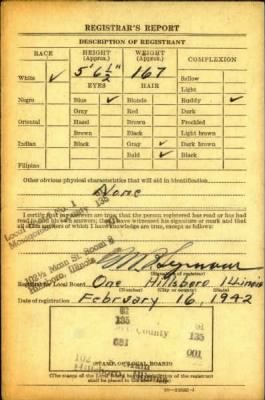 REGISTRAR'S REPORT
DESCRIPTION OF REGISTRANT
RACE HEIGHT (Approx.) WEIGHT (Approx.) COMPLEXION
White ✓ 5' 6½" 167 Sallow
EYES HAIR Light
Negro Blue ✓ Blonde Ruddy ✓
Gray Red Dark
Oriental Hazel Brown Freckled
Brown Black Light brown
Indian Black Gray ✓ Dark brown
Bald ✓ Black
Filipino
Other obvious physical characteristics that will aid in identification
None
I certify that my answers are true; that the person registered has read or has had
read to him his own answers; that I have witnessed his signature or mark and that all
of his answers of which I have knowledge are true, except as follows:
Local No. 1 135
102½ Main St. Room 8
Hillsboro, Illinois
Registrar for Local Board One Hillsboro Illinois
(Number) (City or county) (State)
Date of registration February 16, 1942
61
135 County 135
081 001
102 Main
Hillsboro,
STAMP OF LOCAL BOARD
(The stamp of the Local Board having jurisdiction of the registrant
shall be placed in the above space)